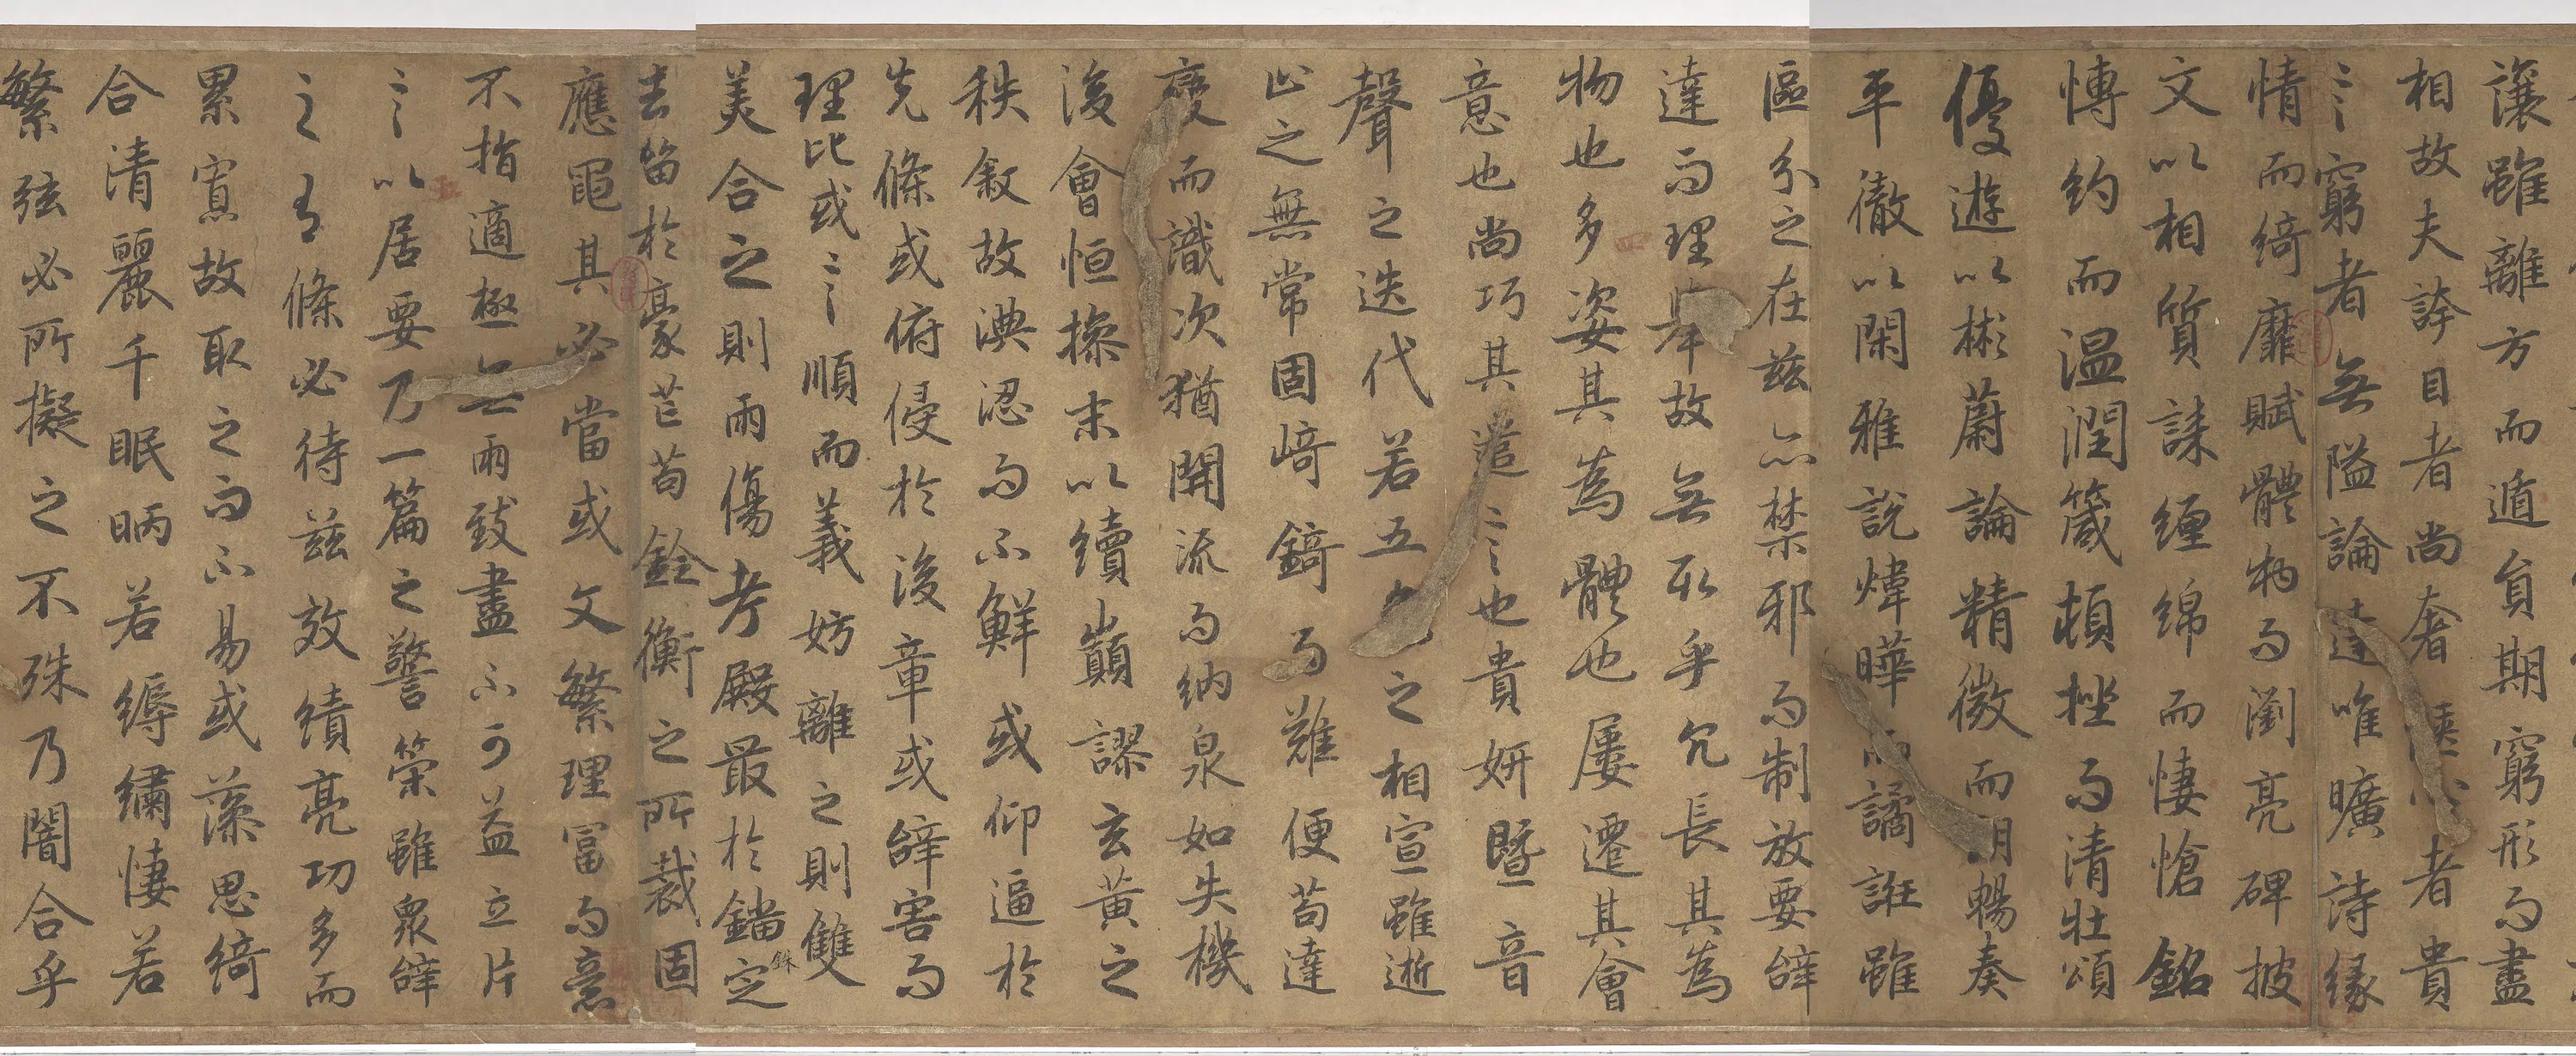 讓雖離方而遁員期窮形而盡
相故夫誇目者尚奢愜心者貴
〻言窮者無隘論達唯曠詩緣
情而綺靡賦體物而瀏亮碑披
文以相質誄纏綿而悽愴銘
愽約而温潤箴頓挫而清壯頌
優遊以彬蔚論精微而朗暢奏
平徹以閑雅說煒曄而譎誑雖
區分之在茲亦禁邪而制放要辝
達而理舉故無取乎冗長其為
物也多姿其為體也屢遷其會
意也尚巧其遣〻言也貴妍暨音
聲之迭代若五色之相宣雖逝
止之無常固崎錡而難便苟達
變而識次猶開流而納泉如失機
後會恒操末以續巔謬玄黃之
秩敘故淟認而不鮮或仰逼於
先條或俯侵於後章或辝害而
理比或〻言順而義妨離之則雙
美合之則兩傷考殿最於錙定
銖
去留於豪芒苟銓衡之所裁固
應繩其必當或文繁理富而意
不指適極無兩致盡不可益立片
〻言以居要乃一篇之警策雖衆辝
之有條必待茲效績亮功多而
累寡故取之而不易或藻思綺
合清麗千眠昞若縟繡悽若
繁弦必所擬之不殊乃闇合乎